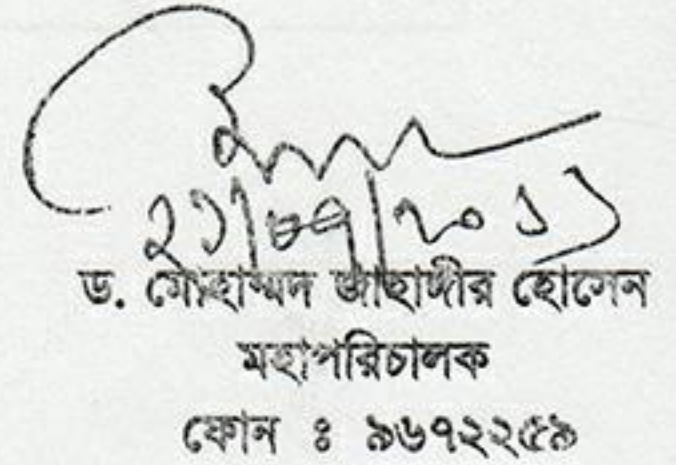 ২১/০৭/২০১১
ড. মোহাম্মদ জাহাঙ্গীর হোসেন
মহাপরিচালক
ফোন ঃ ৯৬৭২২৫৯